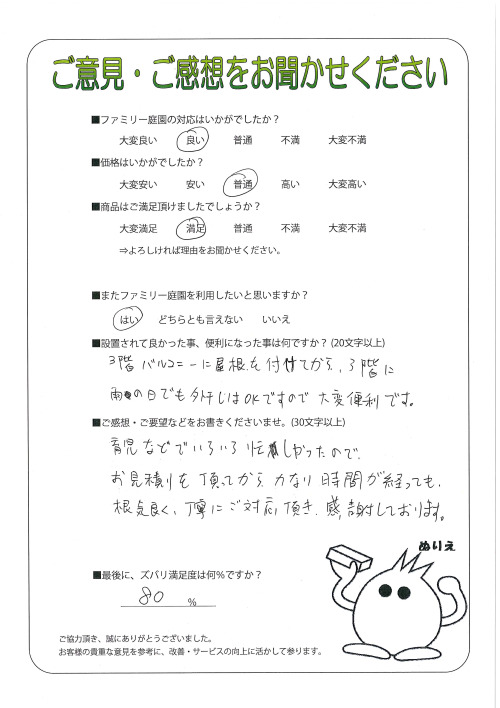 ご意見・ご感想をお聞かせください
■ファミリー庭園の対応はいかがでしたか？
大変良い 良い 普通 不満 大変不満
■価格はいかがでしたか？
大変安い 安い 普通 高い 大変高い
■商品はご満足頂けましたでしょうか？
大変満足 満足 普通 不満 大変不満
⇒よろしければ理由をお聞かせください。
■またファミリー庭園を利用したいと思いますか？
はい どちらとも言えない いいえ
■設置されて良かった事、便利になった事は何ですか？(20文字以上)
3階バルコニーに屋根を付けてから、3階に
雨の日でも外干しはOKですので大変便利です。
■ご感想・ご要望などをお書きくださいませ。(30文字以上)
育児などでいろいろ忙しかったので、
お見積りを頂てからかなり時間が経っても、
根気良く、丁寧にご対応頂き、感謝しております。
ぬりえ
■最後に、ズバリ満足度は何％ですか？
80 %
ご協力頂き、誠にありがとうございました。
お客様の貴重な意見を参考に、改善・サービスの向上に活かして参ります。